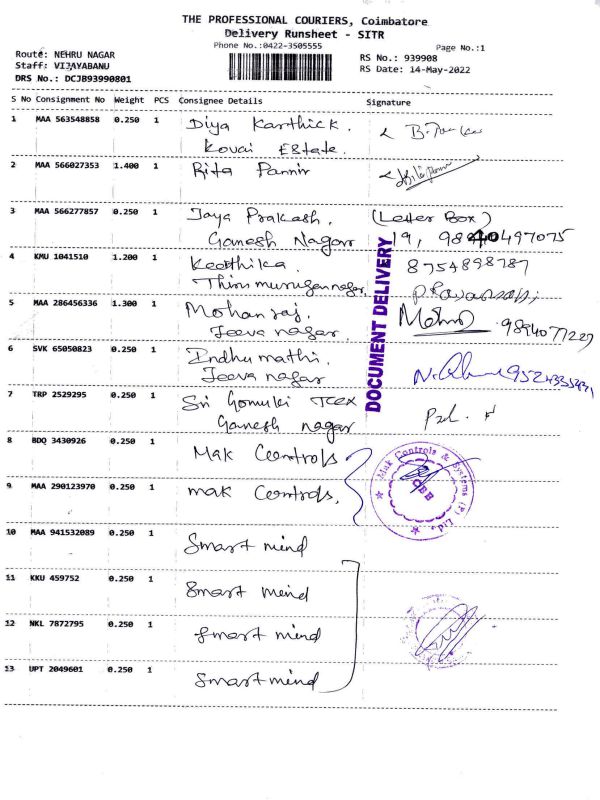 THE PROFESSIONAL COURIERS, Coimbatore
Delivery Runsheet - SITR
Phone No.:0422-3505555
Page No.:1
Route: NEHRU NAGAR
RS No.: 939908
Staff: VIJAYABANU
RS Date: 14-May-2022
DRS No.: DCJB93990801
S No Consignment No Weight PCS Consignee Details Signature
1 MAA 563548858 0.250 1 Diya Karthick.
Kovai EState.
2 MAA 566027353 1.400 1 Rita Pannir
3 MAA 566277857 0.250 1 Jaya Prakash. (Letter Box)
Ganesh Nagar 19, 9840497075
4 KMU 1041510 1.200 1 Keerthika. 8754898787
Thiru murugan nagar
5 MAA 286456336 1.300 1 Mohan raj.
Jeeva nagar. 9894077227
6 SVK 65050823 0.250 1 Indhu mathi.
Jeeva nagar
7 TRP 2529295 0.250 1 Sri Gomuki Tex
Ganesh nagar
DOCUMENT DELIVERY
8 BDQ 3430926 0.250 1 Mak Controls
9 MAA 290123970 0.250 1 mak Controls.
Mak Controls & Systems (P) Ltd.
CBE
10 MAA 941532089 0.250 1 Smart mind
11 KKU 459752 0.250 1 Smart mind
12 NKL 7872795 0.250 1 Smart mind
13 UPT 2049601 0.250 1 Smart mind